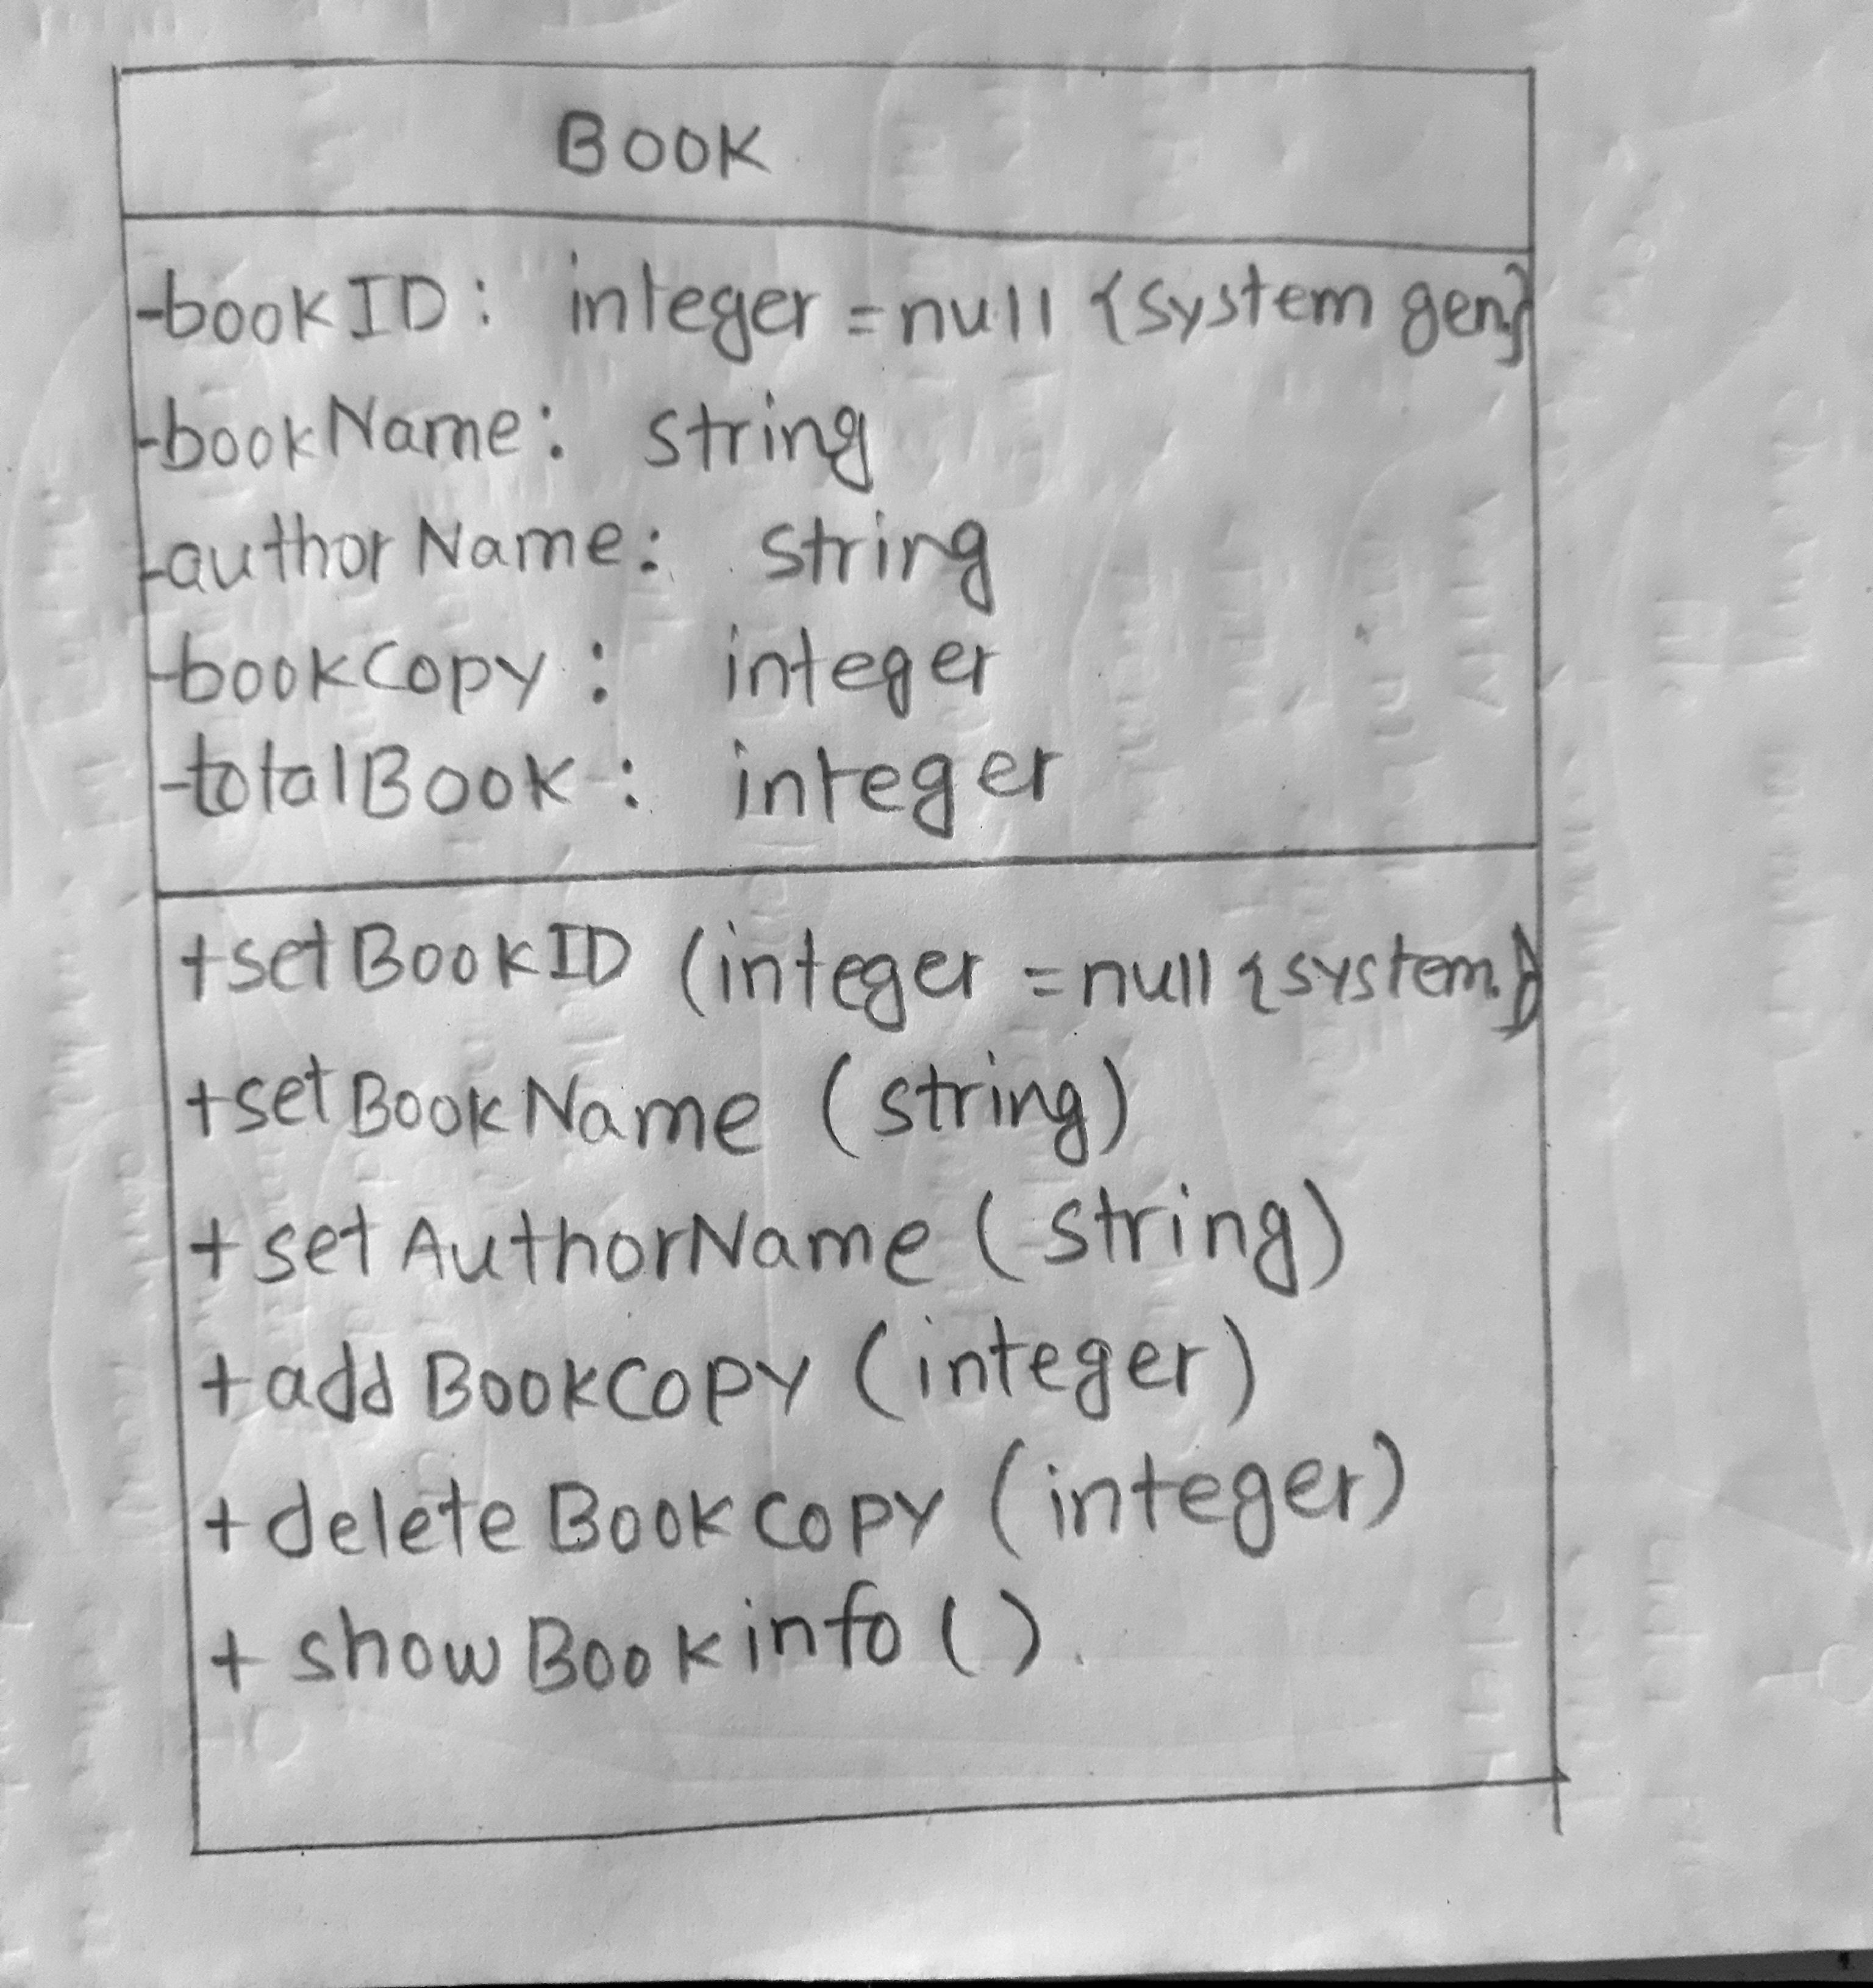 BOOK
-bookID: integer =null {system gen.}
-bookName: string
-authorName: string
-bookCopy: integer
-totalBook: integer
+setBookID (integer =null {system.})
+setBookName (string)
+setAuthorName (string)
+addBookCopy (integer)
+deleteBookCopy (integer)
+showBookinfo ().